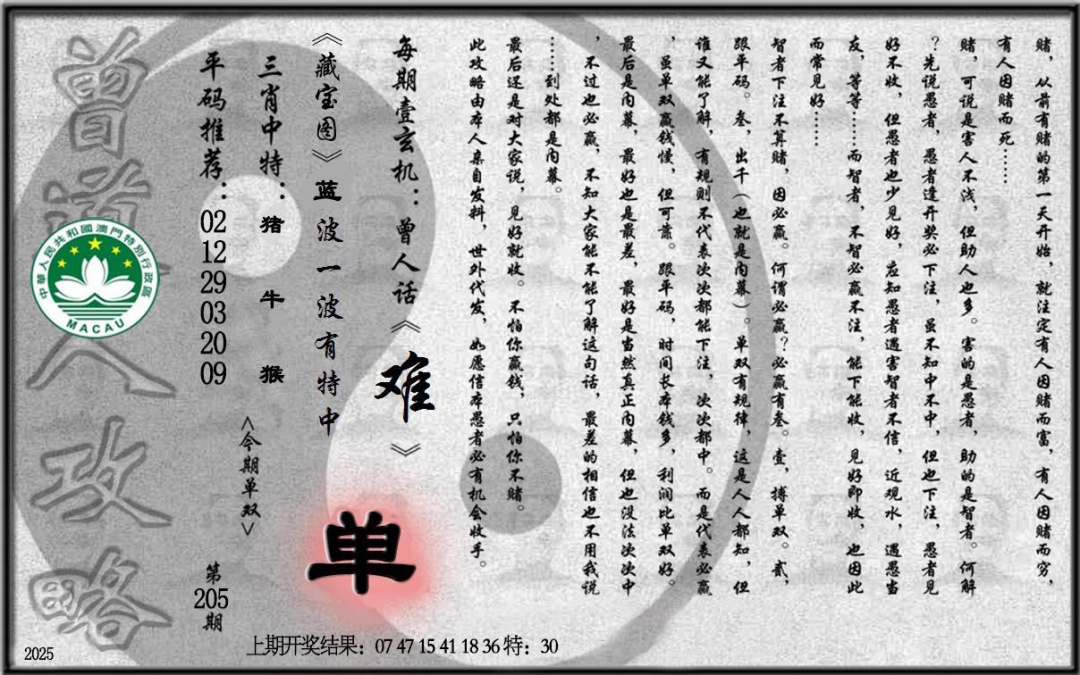 赌，从前有赌的第一天开始，就注定有人因赌而富，有人因赌而穷，
有人因赌而死……
赌，可说是害人不浅，但助人也多。害的是愚者，助的是智者。何解
？先说愚者，愚者逢开奖必下注，虽不知中不中，但也下注，愚者见
好不收，但愚者也少见好，应知愚者遇害智者不信，近观水，遇愚当
友，等等……而智者，不智必赢不注，能下能收，见好即收，也因此
而常见好……
智者下注不算赌，因必赢。何谓必赢？必赢有叁。壹，搏单双。贰，
跟平码。叁，出千（也就是内幕）。单双有规律，这是人人都知，但
谁又能了解，有规则不代表次次都能下注，次次都中。而是代表必赢
，虽单双赢钱慢，但可靠。跟平码，时间长本钱多，利润比单双好。
最后是内幕，最好也是最差，最好是当然真正内幕，但也没法次次中
，不过也必赢，不知大家能不能了解这句话，最差的相信也不用我说
……到处都是内幕。
最后还是对大家说，见好就收。不怕你赢钱，只怕你不赌。
此攻略由本人亲自发料，世外代发，如愿信本愚者必有机会收手。
每期壹玄机：曾人话《难》
《藏宝图》蓝波一波有特中
三肖中特：猪 牛 猴
<今期单双>
单
平码推荐：
02
12
29
03
20
09
第205期
曾道人攻略
中華人民共和國澳門特別行政區
MACAU
上期开奖结果：07 47 15 41 18 36 特：30
2025